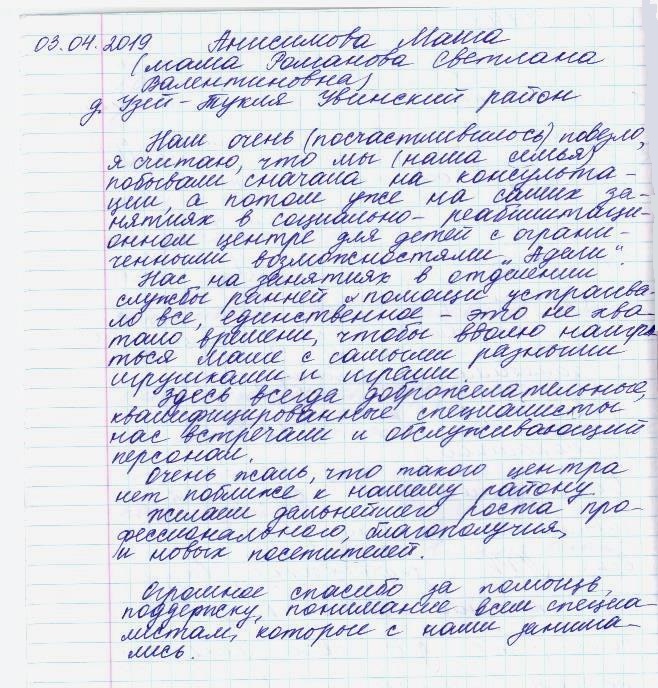 03.04.2019 Анисимова Маша
(мама Романова Светлана
Валентиновна)
д. Узей-Тукля Увинский район
Нам очень (посчастливилось) повезло,
я считаю, что мы (наша семья)
побывали сначала на консульта-
ции, а потом уже на самих за-
нятиях в социально-реабилитаци-
онном центре для детей с ограни-
ченными возможностями „Адели".
Нас на занятиях в отделении
службы ранней помощи устраива-
ло все, единственное - это не хва-
тало времени, чтобы вволю наигра-
ться Маше с самыми разными
игрушками и играми.
Здесь всегда доброжелательные,
квалифицированные специалисты
нас встречали и обслуживающий
персонал.
Очень жаль, что такого центра
нет поближе к нашему району.
Желаем дальнейшего роста про-
фессионального, благополучия,
и новых посетителей.
Огромное спасибо за помощь,
поддержку, понимание всем специа-
листам, которые с нами занима-
лись.